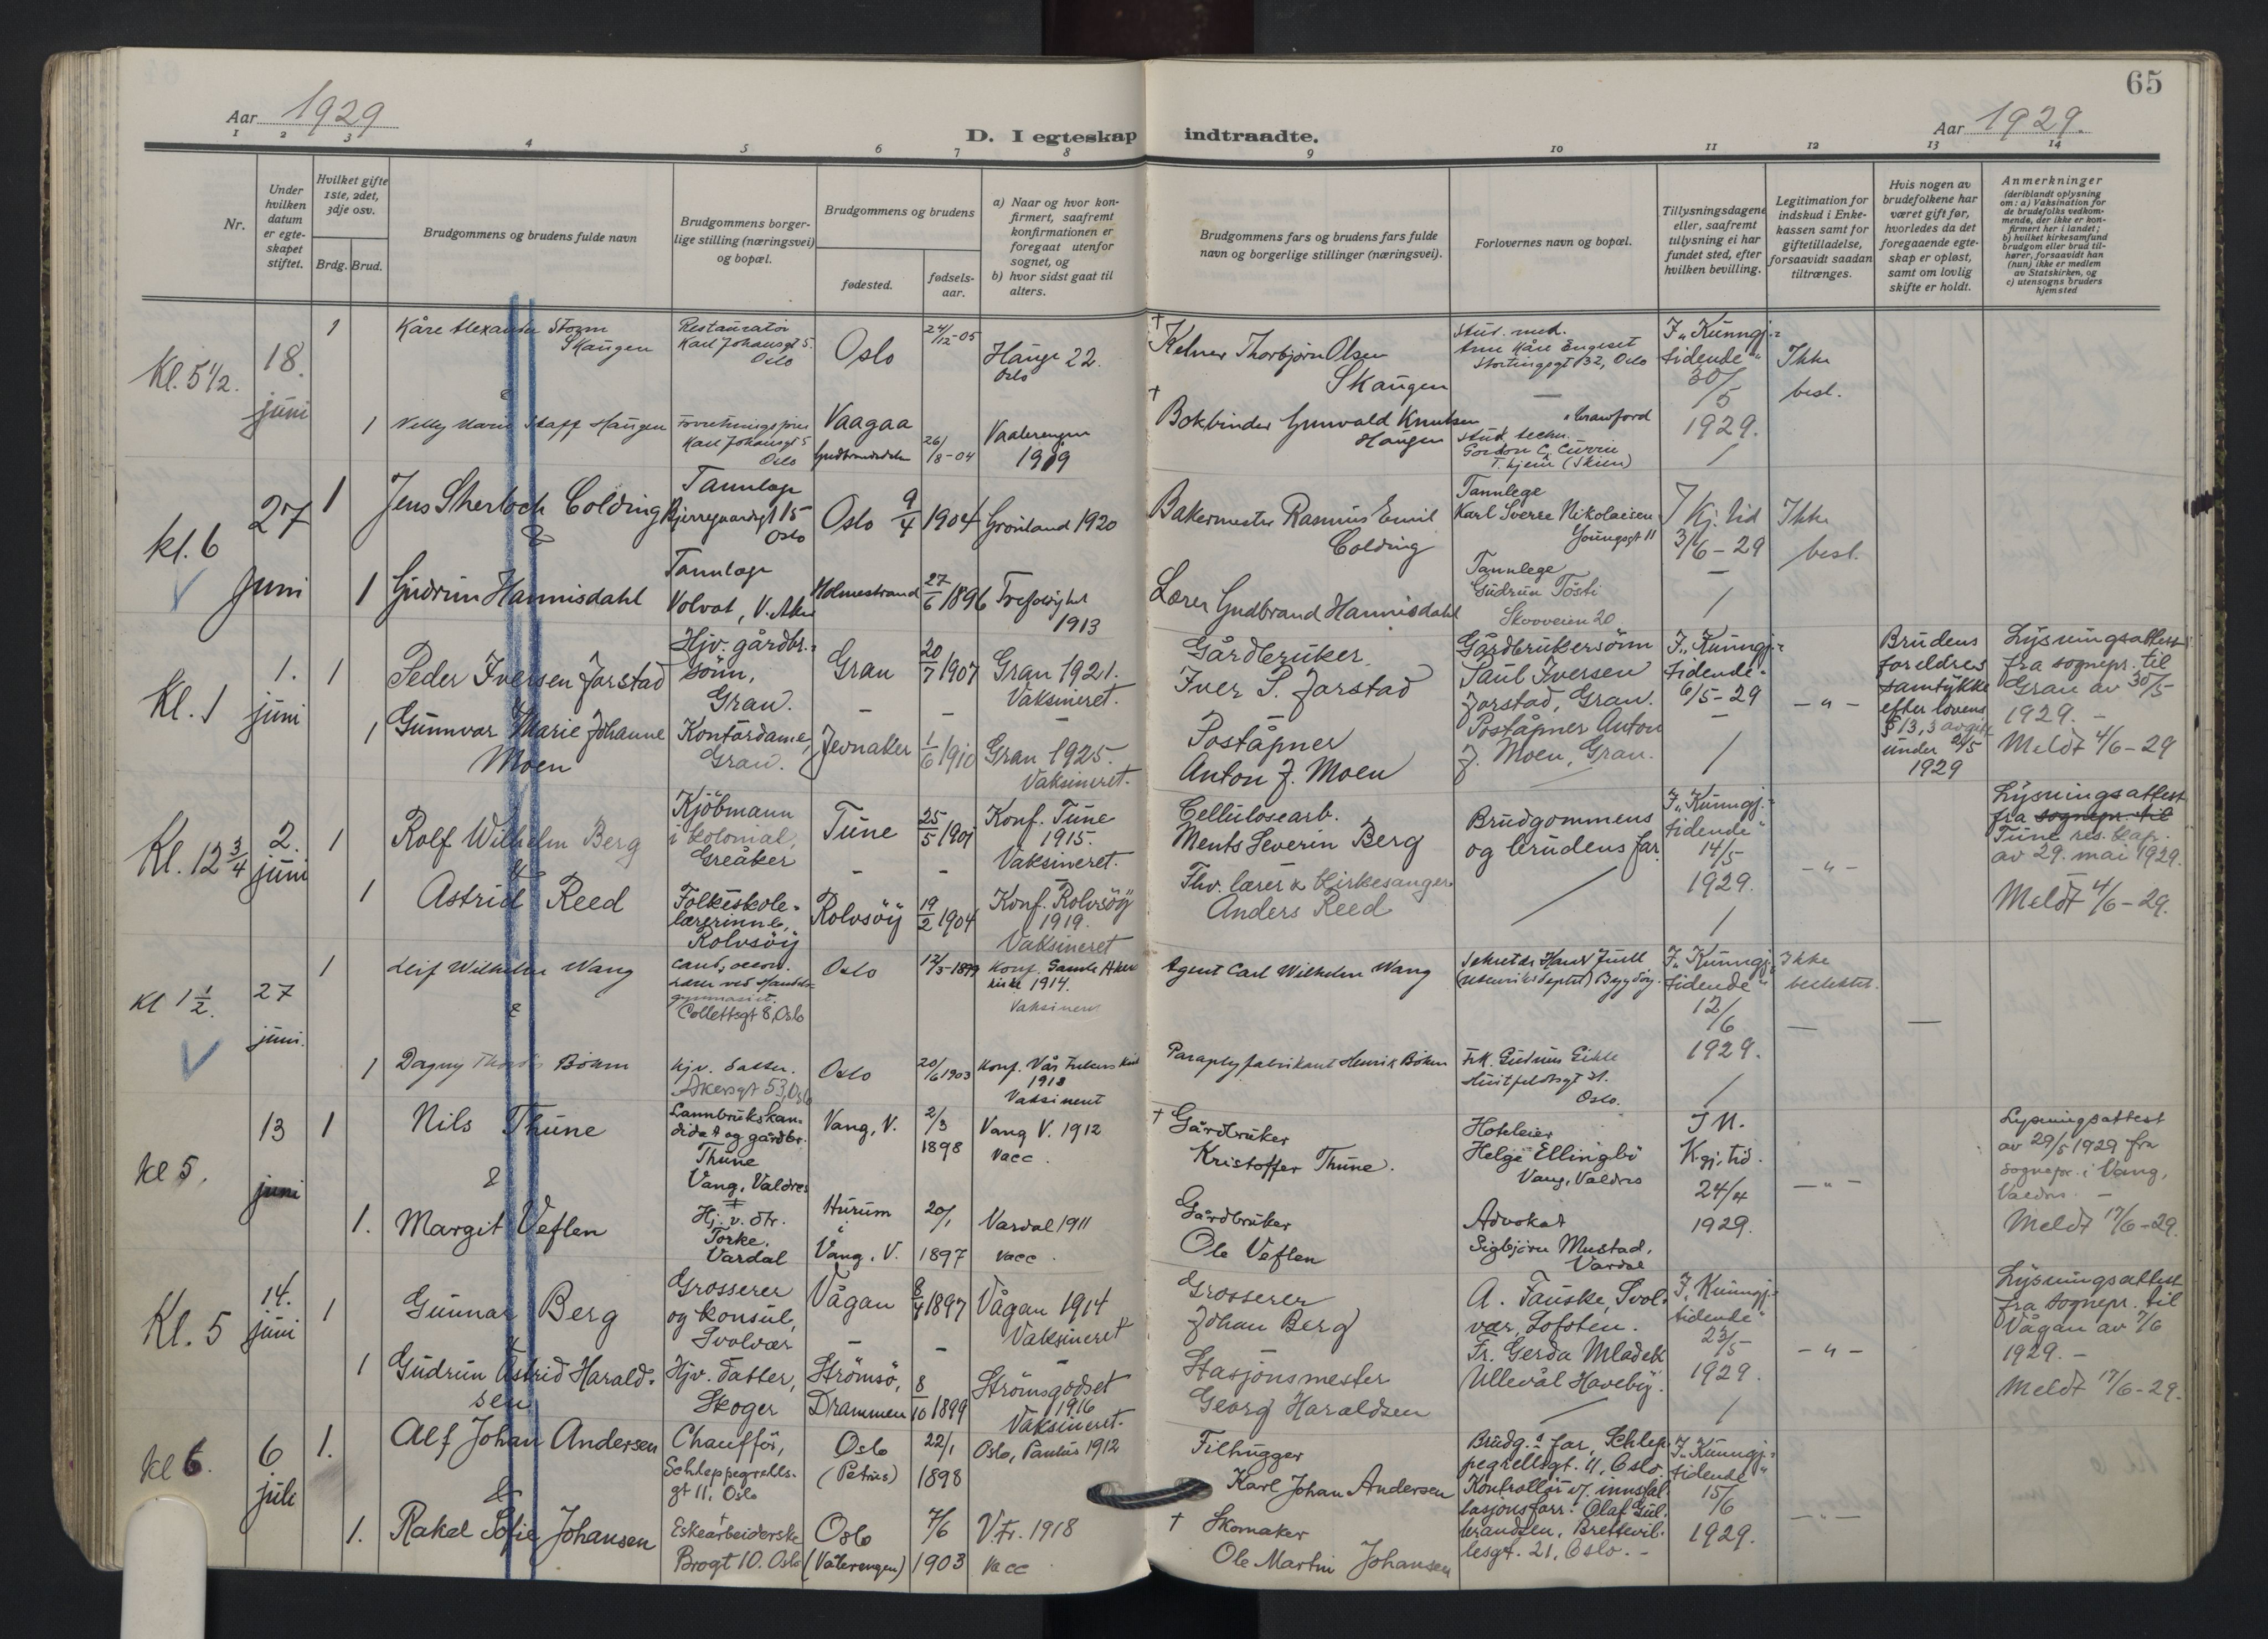 65
Aar 1929
Aar 1929.
D. I egteskap indtraadte.
1 2 3 4 5 6 7 8 9 10 11 12 13 14
Nr.
Under hvilken datum er egteskapet stiftet.
Hvilket gifte 1ste, 2det, 3dje osv.
Brdg. Brud.
Brudgommens og brudens fulde navn
Brudgommens borgerlige stilling (næringsvei) og bopæl.
Brudgommens og brudens
fødested.
fødsels-aar.
a) Naar og hvor konfirmert, saafremt konfirmationen er foregaat utenfor sognet, og
b) hvor sidst gaat til alters.
Brudgommens fars og brudens fars fulde navn og borgerlige stillinger (næringsvei).
Forlovernes navn og bopæl.
Tillysningsdagene eller, saafremt tillysning ei har fundet sted, efter hvilken bevilling.
Legitimation for indskud i Enkekassen samt for giftetilladelse, forsaavidt saadan tiltrænges.
Hvis nogen av brudefolkene har været gift før, hvorledes da det foregaaende egteskap er opløst, samt om lovlig skifte er holdt.
Anmerkninger
(deriblandt oplysning om: a) Vaksination for de brudefolks vedkommende, der ikke er konfirmert her i landet; b) hvilket kirkesamfund brudgom eller brud tilhører, forsaavidt han (hun) ikke er medlem av Statskirken, og c) utensogns bruders hjemsted
Kl. 5 1/2. 18. juni
1 Kåre Alexander Storm Skaugen
Restauratør Karl Johansgt 5. Oslo
Oslo 24/12-05
Hauge 22. Oslo
† Kelner Thorbjørn Olsen Skaugen
stud. med. Arne Kåre Engeset Stortingsgt 32, Oslo
I „Kunngj.-tidende" 30/5 1929.
Ikke besl.
&
1 Nelly Marie Skaff Haugen
Karl Johansgt 5 Oslo
Vaagaa Gudbrandsdalen 26/8-04
Vaalerengen 1919
† Bokbinder Gunvald Knutsen Haugen
stud. techn. Gordon C. Currie
(Skien)
kl. 6 27 juni
1 Jens Sherloch Colding
Tannlæge
Bjerregaardsgt 15 Oslo
Oslo 9/4 1904
Grønland 1920
Bakermester Rasmus Emil Colding
Tannlege Karl Sverre Nikolaisen Youngsgt 11
I Kj. tid 3/6-29
Ikke besl.
&
1 Gudrun Hannisdahl
Tannlæge Volvat, V. Aker
Holmestrand 27/6 1896
Trefoldighet 1913
Lærer Gudbrand Hannisdahl
Tannlege Gudrun Tosti
Skovveien 20
Kl. 1 1. juni
1 Peder Iversen Jorstad
Hjv. gårdbr.-sønn, Gran.
Gran 20/7 1907
Gran 1921. Vaksineret.
Gårdbruker Iver P. Jorstad
Gårdbrukersønn Paul Iversen Jorstad, Gran.
I „Kunngj.-tidende" 6/5-29
- " -
Brudens foreldres samtykke efter lovens § 13,3 avgitt under 24/5 1929
Lysningsattest fra sognepr. til Gran av 30/5 1929. -
Meldt 4/6-29
1 Gunnvor Marie Johanne Moen
Kontordame, Gran.
Jevnaker 1/6 1910
Gran 1925. Vaksineret.
Poståpner Anton J. Moen
Poståpner Anton J. Moen, Gran.
Kl. 12 3/4 2. juni
1 Rolf Wilhelm Berg
Kjøbmann i kolonial, Greåker
Tune 25/5 1901
Konf. Tune 1915. Vaksineret.
Cellulosearb. Ments Severin Berg
Brudgommens og brudens far.
I „Kunngj.-tidende" 14/5 1929.
- " -
Lysningsattest fra sognepr. til Tune res. kap. av 29. mai 1929.
Meldt 4/6-29.
&
1 Astrid Reed
Folkeskole-lærerinne, Rolvsøy
Rolvsøy 19/2 1904
Konf. Rolvsøy 1919. Vaksineret
Fhv. lærer & kirkesanger Anders Reed
Kl 1 1/2. 27 juni.
1 Leif Wilhelm Wang
cand. oecon. lærer ved Handels-gymnasiet. Collettsgt 8, Oslo
Oslo 12/3-1899
Konf. Gamle Aker kirke 1914. Vaksinert
Agent Carl Wilhelm Wang
Sekretær Hans Juell (Utenriksdeptet) Bygdøy.
I „Kunngj.-tidende" 12/6 1929.
Ikke beslektet.
&
1 Dagny Böhm
Hjv. datter. Akersgt 53, Oslo
Oslo 20/6 1903
Konf. Vår Frelsers Kirke 1918 Vaksinert
Paraplyfabrikant Henrik Böhm
Frk. Gudrun Eikle Huitfeldtsgt 21. Oslo.
Kl 5. 13 juni
1 Nils Thune
Lannbrukskandidat og gårdbr. Thune Vang, Valdres
Vang, V. 2/3 1898
Vang V. 1912 vacc.
† Gårdbruker Kristoffer Thune.
Hoteleier Helge Ellingbö Vang, Valdres
I N. Kgj. tid. 24/4 1929.
- " -
Lysningsattest av 29/5 1929 fra sognepr. i Vang, Valdres. -
Meldt 17/6-29.
&
1. Margit Veflen
Hj. v. dtr. Torke, Vardal
Hurum i Vang, V. 20/1 1897
Vardal 1911 vacc.
Gårdbruker Ole Veflen
Advokat Sigbjørn Mustad, Vardal
Kl. 5 14. juni
1 Gunnar Berg
Grosserer og konsul, Svolvær
Vågan 8/4 1897
Vågan 1914 Vaksineret
Grosserer Johan Berg
A. Fauske, Svolvær, Lofoten.
I „Kunngj.-tidende" 23/5 1929.
- " -
Lysningsattest fra sognepr. til Vågan av 7/6 1929. -
Meldt 17/6-29.
&
1 Gudrun Astrid Haraldsen
Hjv. datter, Skoger
Strömsö, Drammen 8/10 1899
Strömsgodset 1916 Vaksineret.
Stasjonsmester Georg Haraldsen
Fr. Gerda Mladek Ullevål Haveby.
Kl 6. 6 juli
1. Alf Johan Andersen
Chauffør, Schleppegrells-gt 11, Oslo
Oslo (Petrus) 22/1 1898
Oslo, Paulus 1912
Filhugger Karl Johan Andersen
Brudg.s far, Schleppegrellsgt. 11, Oslo.
I „Kunngj.-tidende" 15/6 1929.
- " -
&
1. Rakel Sofie Johansen
Eskearbeiderske Brogt 10. Oslo
Oslo (Vålerengen) 7/6 1903
V. Fr. 1918 vacc
† Skomaker Ole Martin Johansen
Kontrollør v. innstallasjonsforr. Olaf Gulbrandsen, Brettevillesgt. 21, Oslo. -